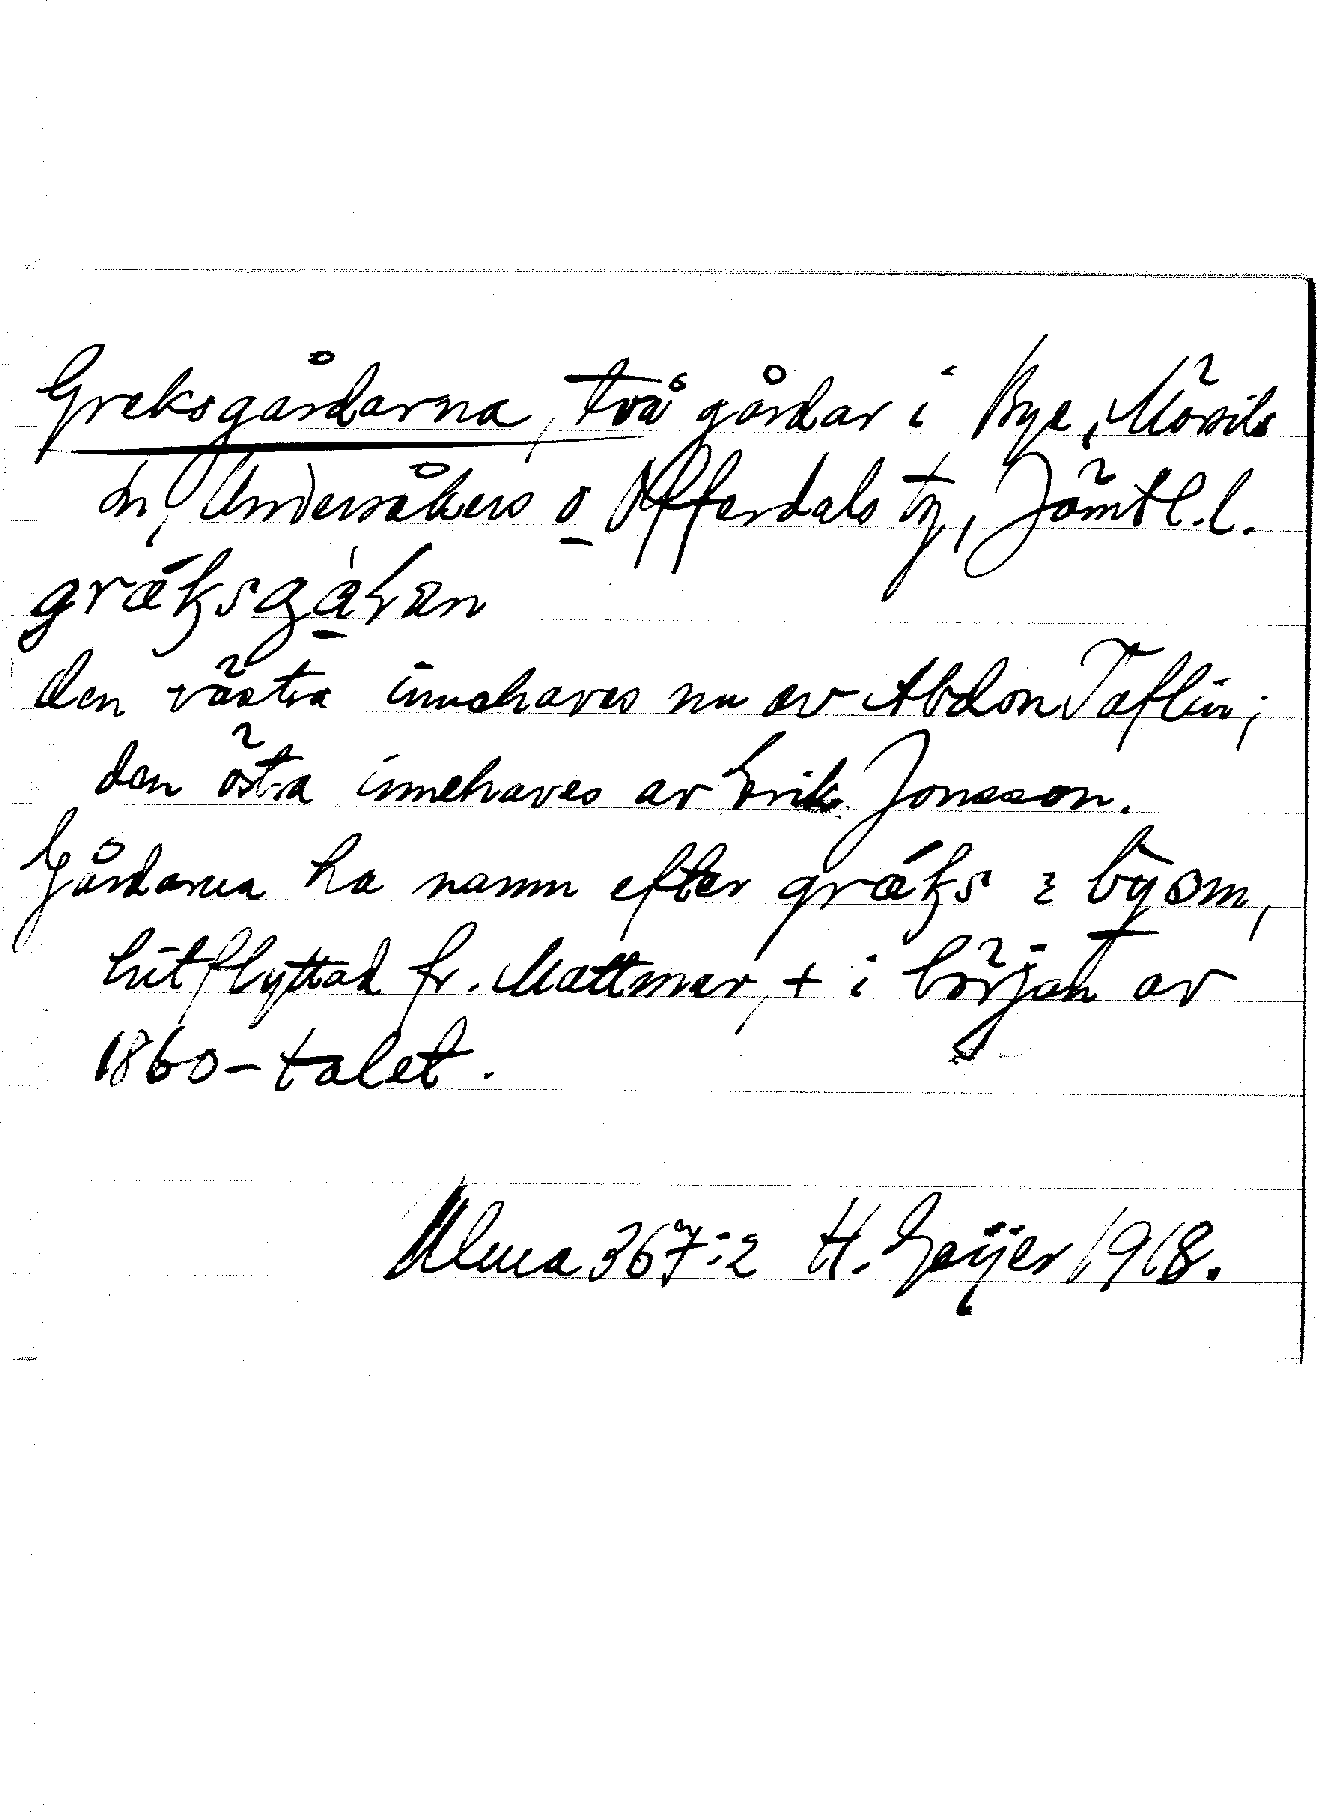 Greksgårdarna, två gårdar i Bye, Mörsils
sn, Undersåkers o Offerdals tg, Jämtl. l.
grǽksgàɽan
den västra innehaves nu av Abdon Taflin;
den östra innehaves av Erik Jonsson.
Gårdarna ha namn efter grǽks ɩ byom,
hitflyttad fr. Mattmar, + i början av
1860-talet.
Ulma 367:2 H. Geijer 1918.